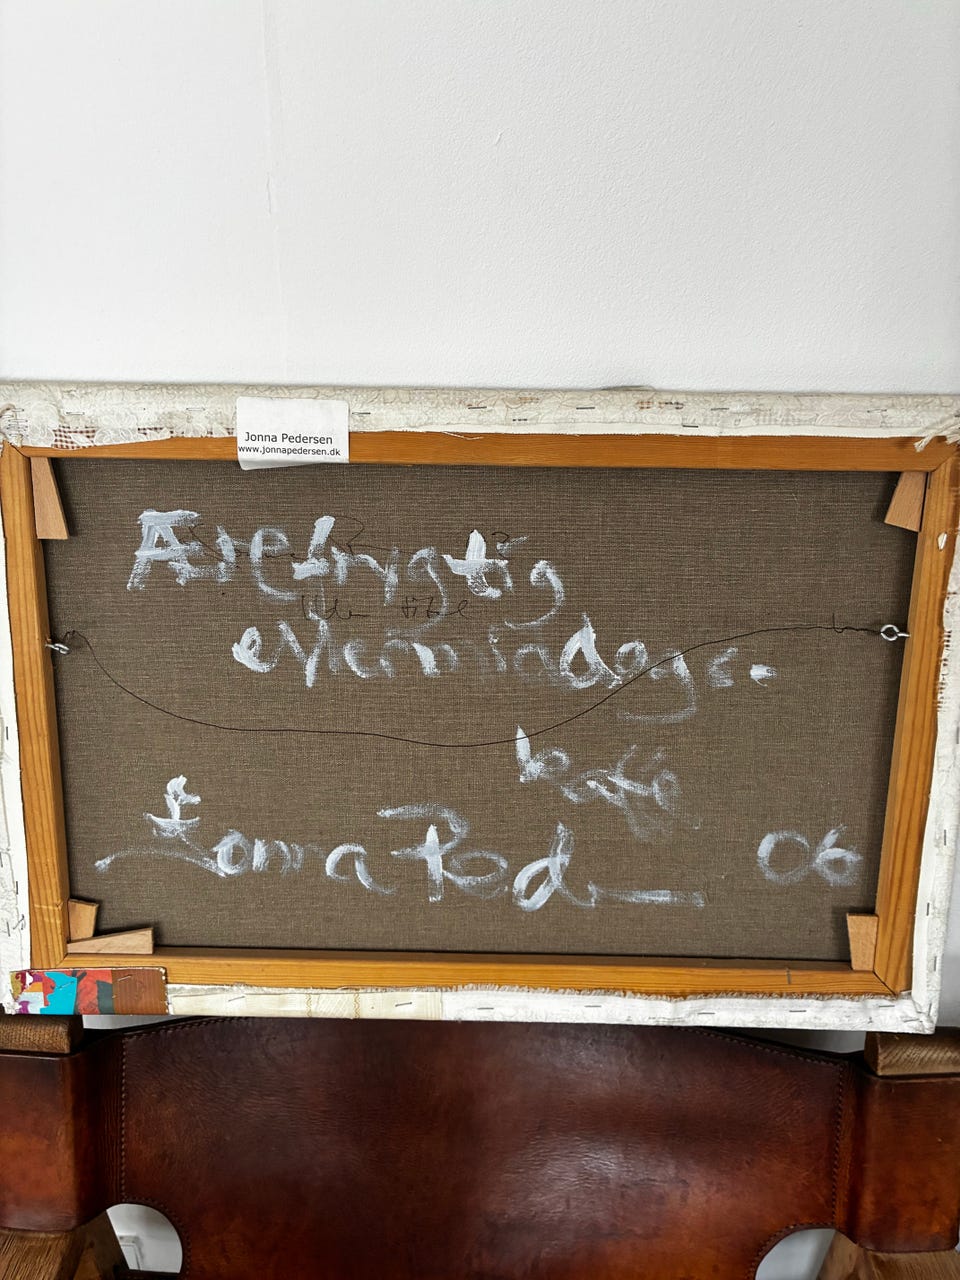 Jonna Pedersen
www.jonnapedersen.dk
Ærefrygtig
Uden titel
eftermiddags-
kaffe
Jonna Ped
06